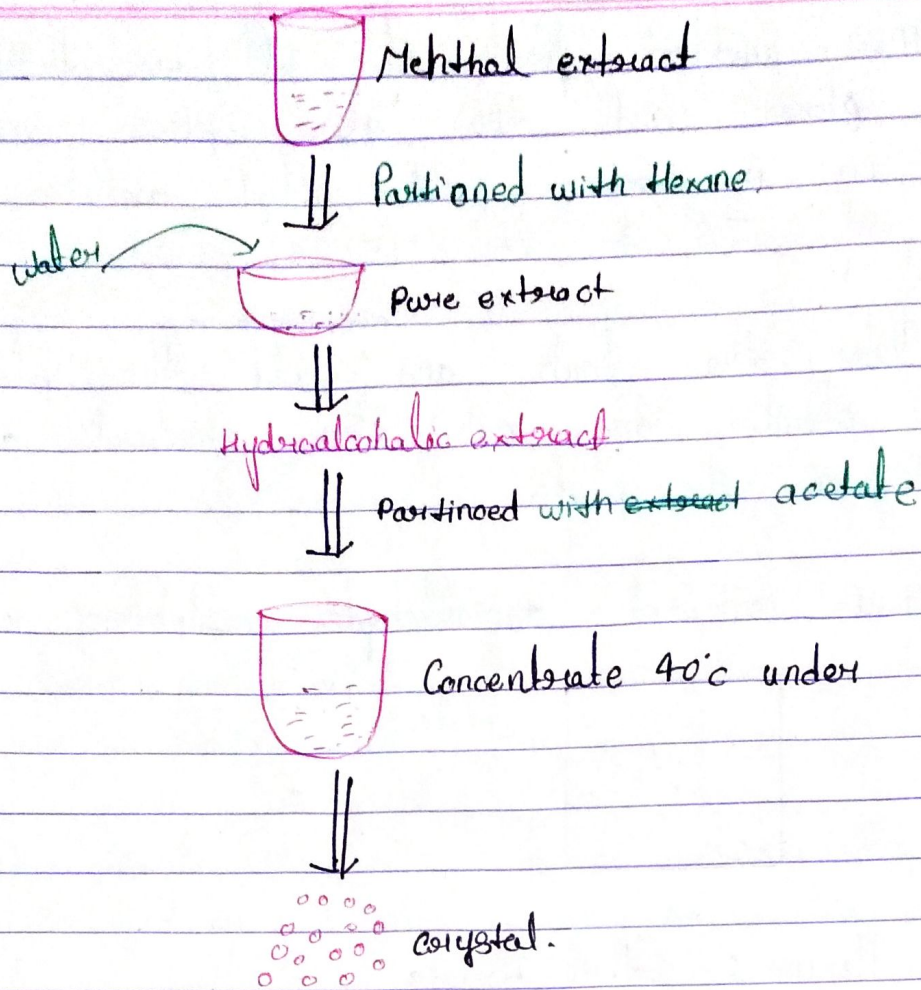 Mehthal extract
Partioned with Hexane.
water
Pure extract
Hydroalcohalic extract
Partinoed with extract acetate
Concentrate 40°c under
crystal.